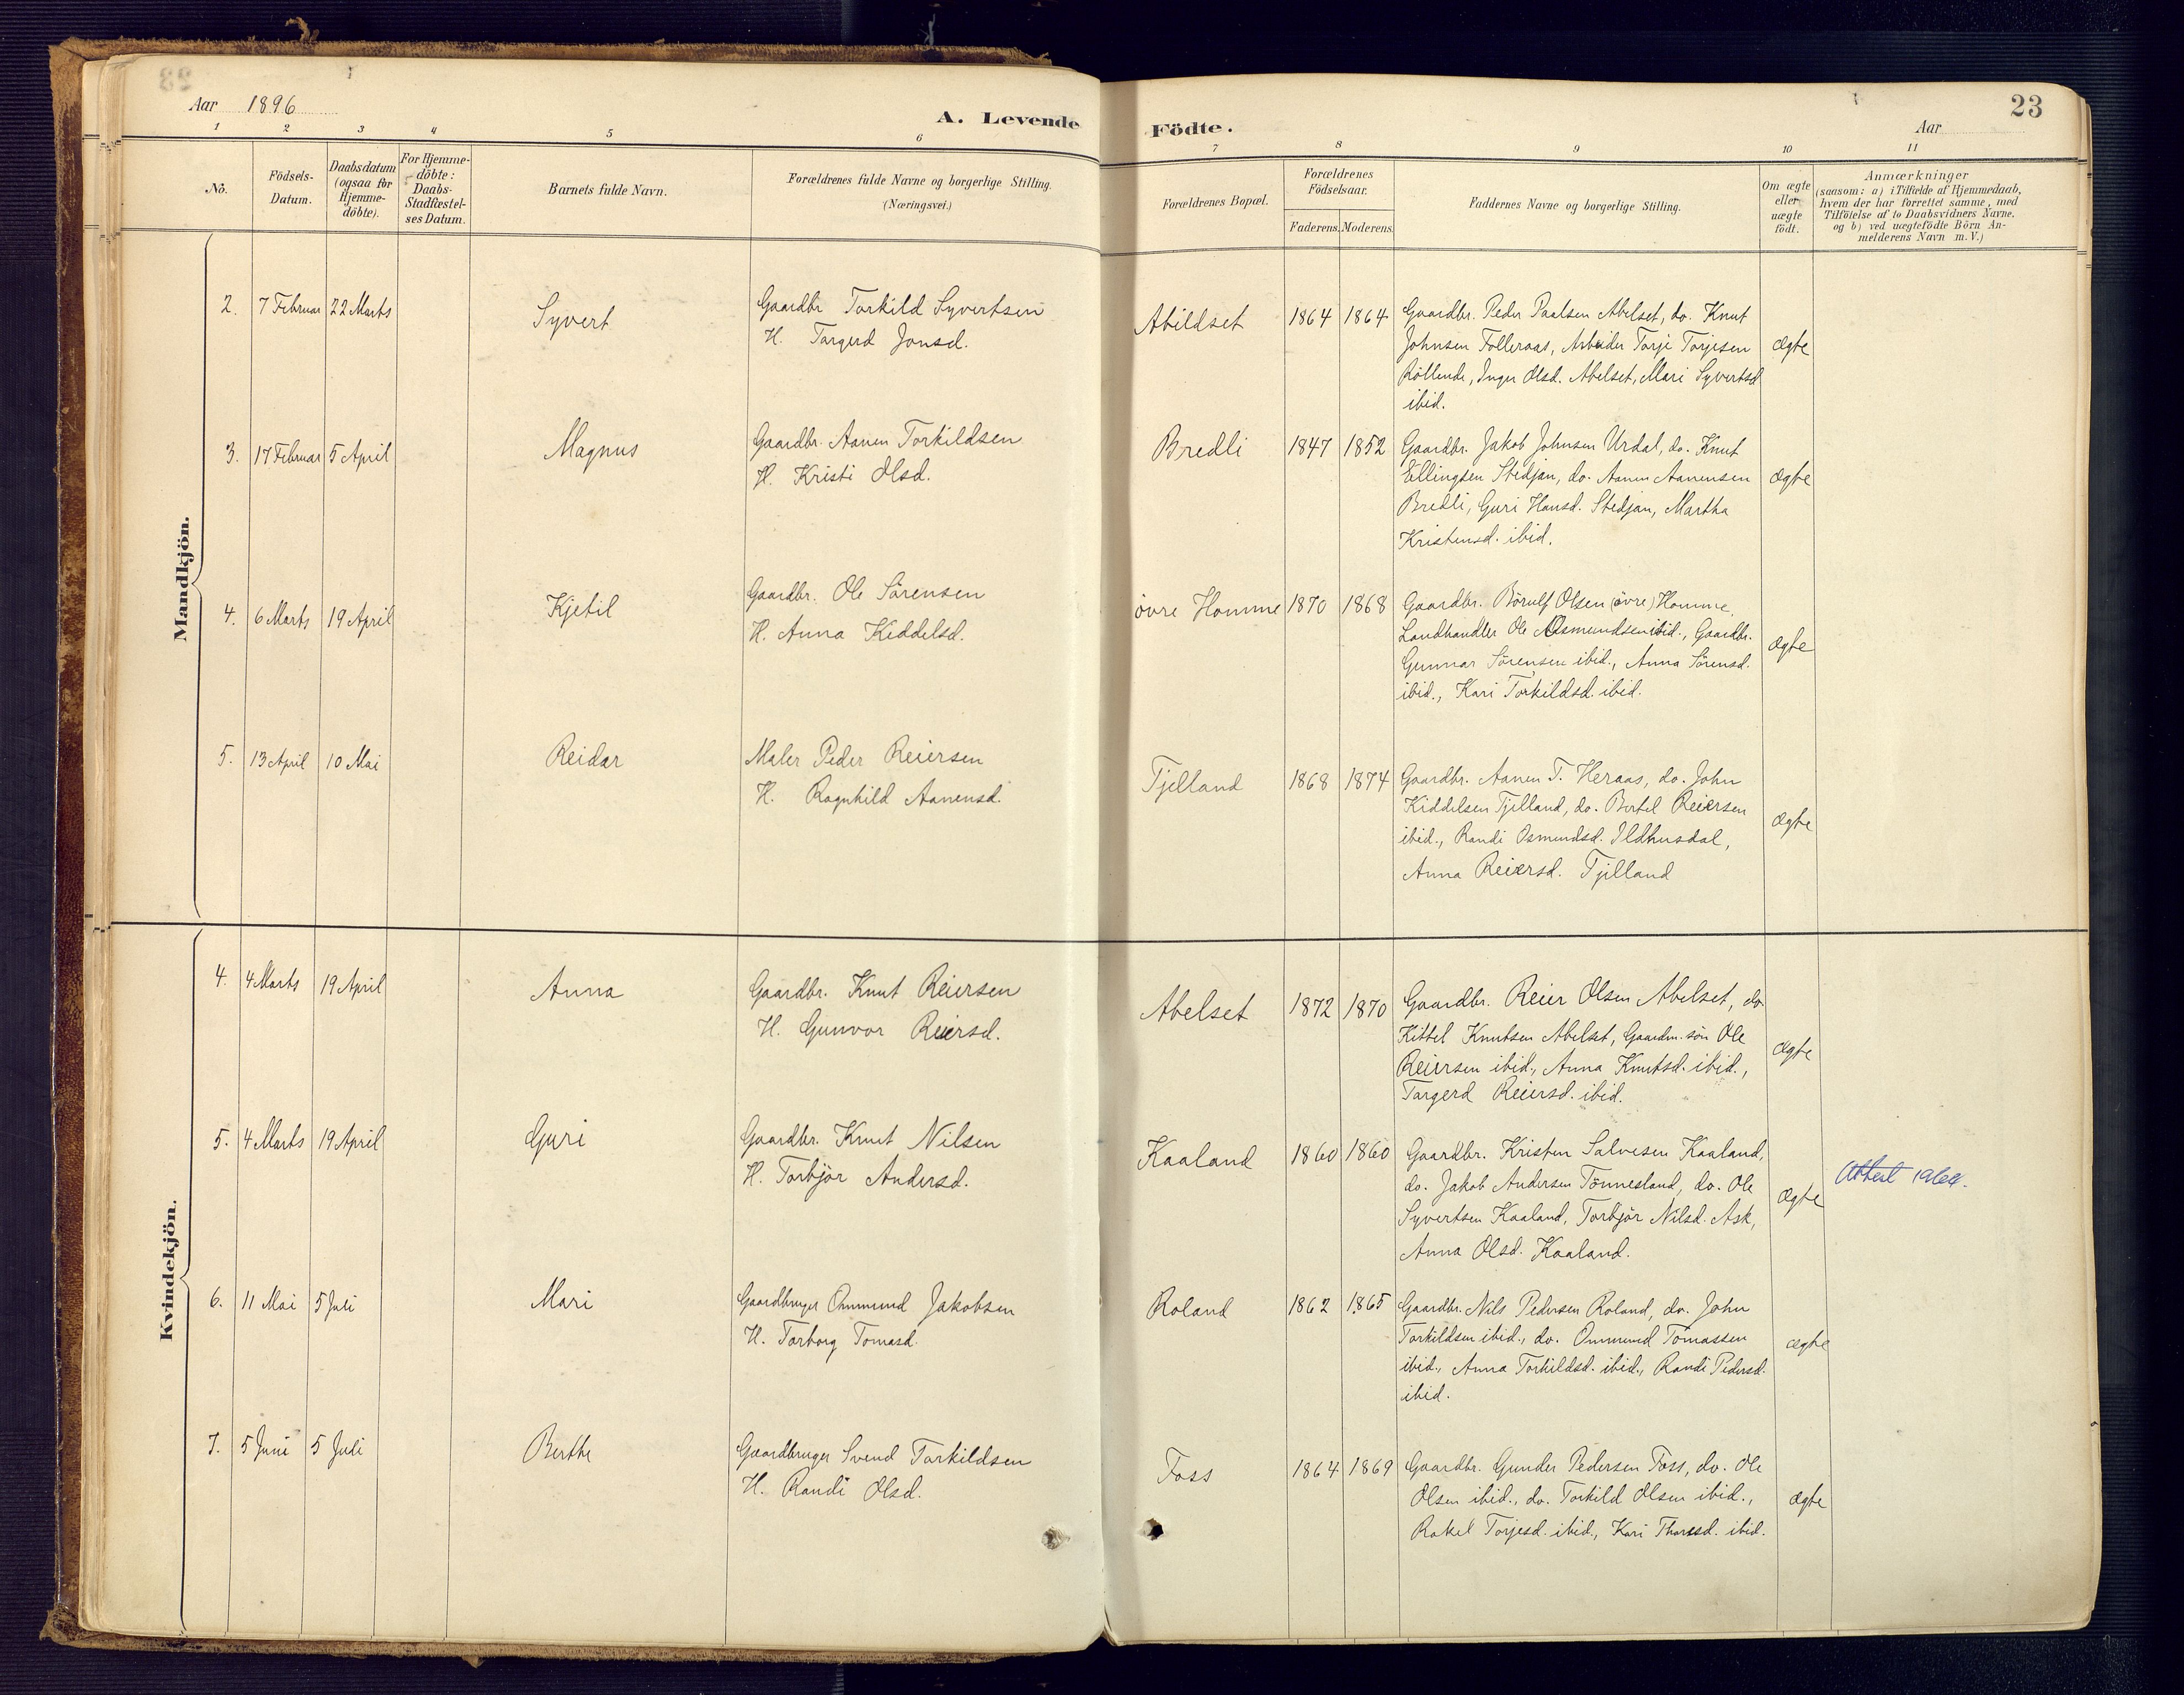 23
Aar 1896
A. Levende Födte.
Aar
1 2 3 4 5 6 7 8 9 10 11
No.
Födsels-Datum.
Daabsdatum (ogsaa for Hjemme-döbte).
For Hjemme-döbte: Daabs-Stadfæstel-ses Datum.
Barnets fulde Navn.
Forældrenes fulde Navne og borgerlige Stilling.
(Næringsvei.)
Forældrenes Bopæl.
Forældrenes Födselsaar.
Faderens. Moderens.
Faddernes Navne og borgerlige Stilling.
Om ægte eller uægte födt.
Anmærkninger
(saasom: a) i Tilfælde af Hjemmedaab,
hvem der har forrettet samme, med
Tilföielse af to Daabsvidners Navne.
og b) ved uægtefödte Börn An-
melderens Navn m. V.)
Mandkjön.
2. 7 Februar 22 Marts Syvert
Gaardbr Torkild Syvertsen
H. Targerd Jonsd.
Abildset 1864 1864
Gaardbr. Peder Paalsen Abelset, do. Knut
Johnsen Folleraas, Arbeider Torje Torjesen
Röllend, Inger Olsd. Abelset, Mari Syvertsd
ibid.
ægte
3. 17 Februar 5 April Magnus
Gaardbr. Aanen Torkildsen
H. Kristi Olsd.
Bredli 1847 1852
Gaardbr. Jakob Johnsen Urdal, do. Knut
Ellingsen Stedjan, do. Aanen Aanensen
Bredli, Guri Hansd. Stedjan, Martha
Kristensd. ibid.
ægte
4. 6 Marts 19 April Kjetil
Gaardbr. Ole Sörensen
H. Anna Kiddelsd.
övre Homme 1870 1868
Gaardbr. Börulf Olsen (övre) Homme,
Landhandler Ole Aasmundsen ibid., Gaardbr.
Gunnar Sörensen ibid., Anna Sörensd.
ibid., Kari Torkildsd. ibid.
ægte
5. 13 April 10 Mai Reidar
Maler Peder Reiersen
H. Ragnhild Aanensd.
Tjelland 1868 1874
Gaardbr. Aanen T. Heraas, do. John
Kiddelsen Tjelland, do. Bertel Reiersen
ibid., Randi Osmundsd. Ildhusdal,
Anna Reiersd. Tjelland
ægte
Kvindekjön.
4. 4 Marts 19 April Anna
Gaardbr. Knut Reiersen
H. Gunvor Reiersd.
Abelset 1872 1870
Gaardbr. Reier Olsen Abelset, do.
Kittel Knutsen Abelset, Gaardm. sön Ole
Reiersen ibid., Anna Knutsd. ibid.,
Targerd Reiersd. ibid.
ægte
5. 4 Marts 19 April Guri
Gaardbr. Knut Nilsen
H. Torbjör Andersd.
Kaaland 1860 1860
Gaardbr. Kristen Salvesen Kaaland,
do. Jakob Andersen Tönnesland, do. Ole
Syvertsen Kaaland, Torbjör Nilsd. Ask,
Anna Olsd. Kaaland.
ægte
Attest
6. 11 Mai 5 Juli Mari
Gaardbruger Ommund Jakobsen
H. Torborg Tomasd.
Roland 1862 1865
Gaardbr. Nils Pedersen Roland, do. John
Torkildsen ibid., do. Ommund Tomassen
ibid., Anna Torkildsd. ibid., Randi Pedersd.
ibid.
ægte
7. 5 Juni 5 Juli Berthe
Gaardbruger Svend Torkildsen
H. Randi Olsd.
Foss 1864 1869
Gaardbr. Gunder Pedersen Foss, do. Ole
Olsen ibid., do. Torkild Olsen ibid.,
Rakel Torjesd. ibid., Kari Tharesd. ibid.
ægte